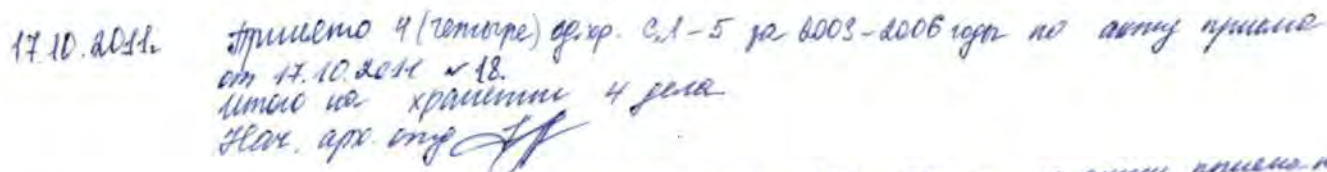 17.10.2011г. Принято 4 (четыре) ед.хр. с 1-5 за 2003-2006 годы по акту приема
от 17.10.2011 № 18.
Итого на хранении 4 дела
Нач. арх. отд
акту приема